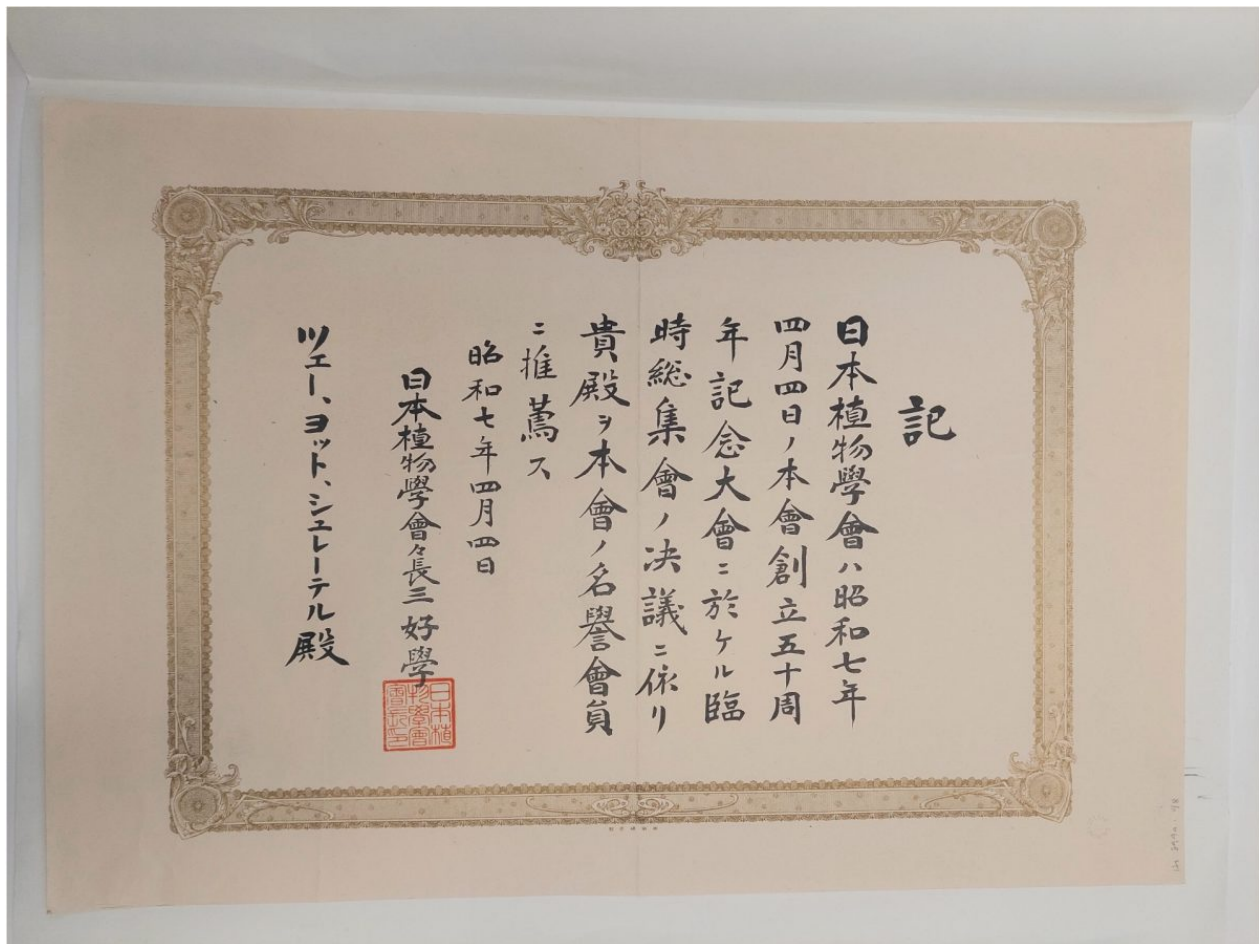 記
日本植物學會ハ昭和七年
四月四日ノ本會創立五十周
年記念大會ニ於ケル臨
時総集會ノ决議ニ依リ
貴殿ヲ本會ノ名譽會員
ニ推薦ス
昭和七年四月四日
日本植物學會々長三好學
日本植
物學會
會長印
ツェー、ヨット、シュレーテル殿